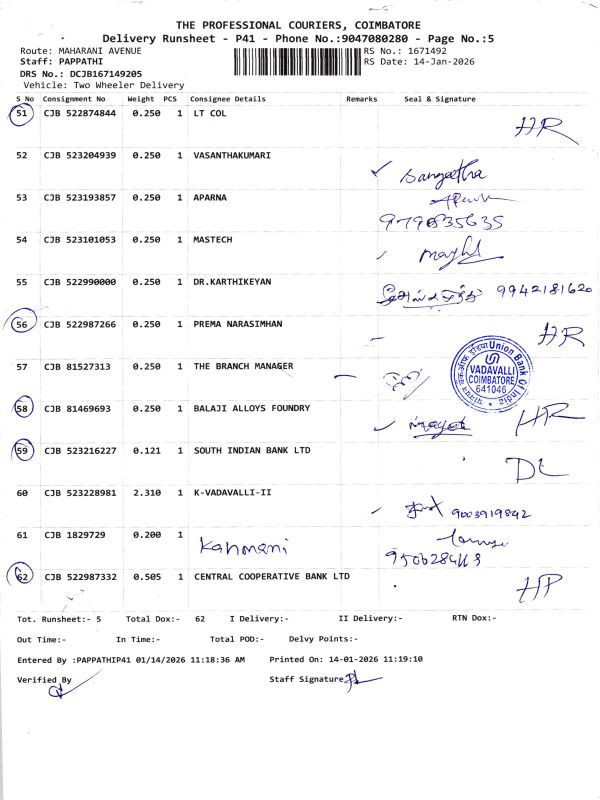 THE PROFESSIONAL COURIERS, COIMBATORE
Delivery Runsheet - P41 - Phone No.:9047080280 - Page No.:5
Route: MAHARANI AVENUE RS No.: 1671492
Staff: PAPPATHI RS Date: 14-Jan-2026
DRS No.: DCJB167149205
Vehicle: Two Wheeler Delivery
S No Consignment No Weight PCS Consignee Details Remarks Seal & Signature
51 CJB 522874844 0.250 1 LT COL HR
52 CJB 523204939 0.250 1 VASANTHAKUMARI Sangeetha
53 CJB 523193857 0.250 1 APARNA
9790835635
54 CJB 523101053 0.250 1 MASTECH
55 CJB 522990000 0.250 1 DR.KARTHIKEYAN 9942181620
56 CJB 522987266 0.250 1 PREMA NARASIMHAN HR
57 CJB 81527313 0.250 1 THE BRANCH MANAGER
Union Bank Of India
VADAVALLI
COIMBATORE
641046
58 CJB 81469693 0.250 1 BALAJI ALLOYS FOUNDRY HR
59 CJB 523216227 0.121 1 SOUTH INDIAN BANK LTD DL
60 CJB 523228981 2.310 1 K-VADAVALLI-II 9003919842
61 CJB 1829729 0.200 1 Kanmani
62 CJB 522987332 0.505 1 CENTRAL COOPERATIVE BANK LTD
Tot. Runsheet:- 5 Total Dox:- 62 I Delivery:- II Delivery:- RTN Dox:-
Out Time:- In Time:- Total POD:- Delvy Points:-
Entered By :PAPPATHIP41 01/14/2026 11:18:36 AM Printed On: 14-01-2026 11:19:10
Verified By Staff Signature